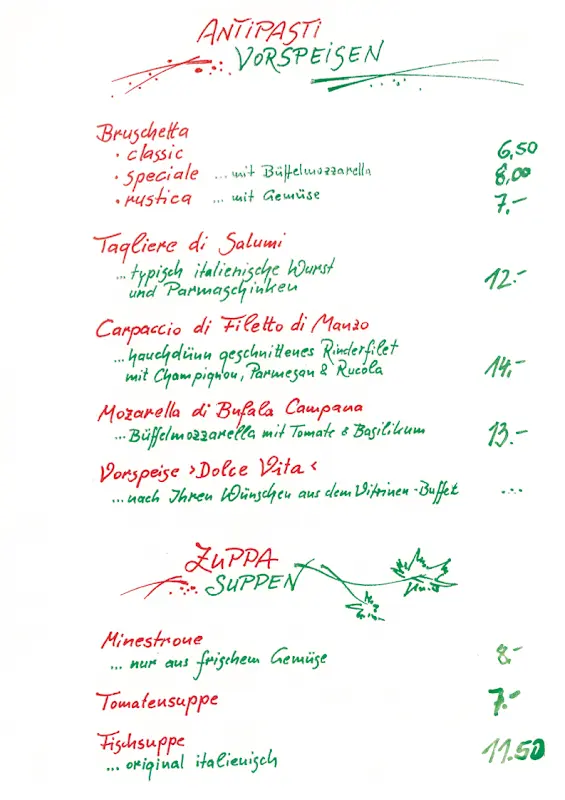 ANTIPASTI
VORSPEISEN
Bruschetta
• classic 6,50
• speciale ... mit Büffelmozzarella 8,00
• rustica ... mit Gemüse 7.-
Tagliere di Salumi
... typisch italienische Wurst
und Parmaschinken 12.-
Carpaccio di Filetto di Manzo
... hauchdünn geschnittenes Rinderfilet
mit Champignon, Parmesan & Rucola 14.-
Mozarella di Bufala Campana
... Büffelmozzarella mit Tomate & Basilikum 13.-
Vorspeise >Dolce Vita<
... nach Ihren Wünschen aus dem Vitrinen-Buffet ...
ZUPPA
SUPPEN
Minestrone
... nur aus frischem Gemüse 8.-
Tomatensuppe 7.-
Fischsuppe
... original italienisch 11.50